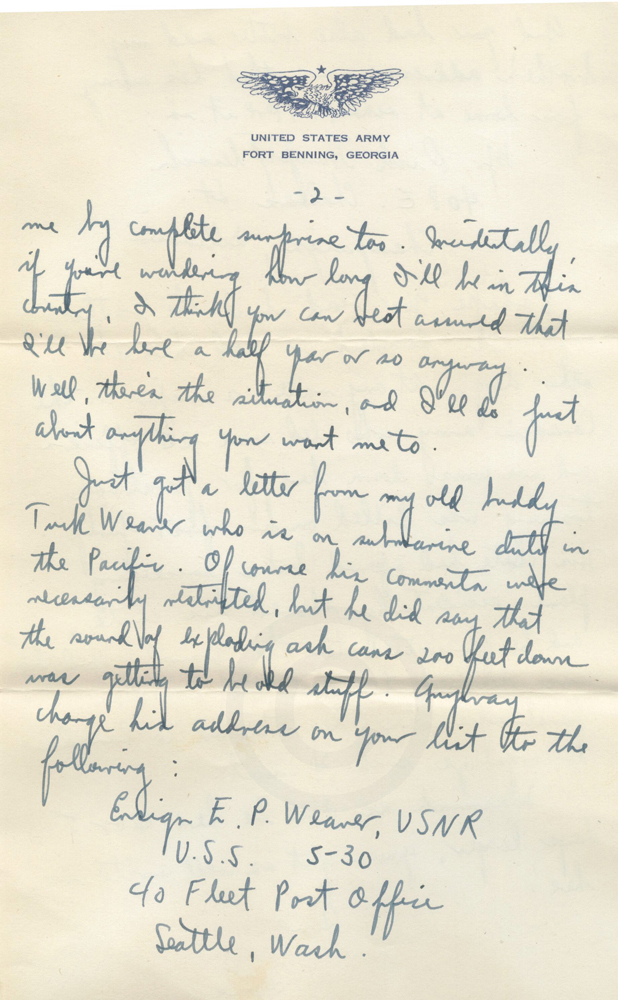 UNITED STATES ARMY
FORT BENNING, GEORGIA
- 2 -
me by complete surprise too. Incidentally,
if you're wondering how long I'll be in this
country, I think you can rest assured that
I'll be here a half year or so anyway.
Well, there's the situation, and I'll do just
about anything you want me to.
Just got a letter from my old buddy
Tuck Weaver who is on submarine duty in
the Pacific. Of course his comments were
necessarily restricted, but he did say that
the sound of exploding ash cans 200 feet down
was getting to be old stuff. Anyway
change his address on your list to the
following:
Ensign E. P. Weaver, USNR
U.S.S. S-30
c/o Fleet Post Office
Seattle, Wash.